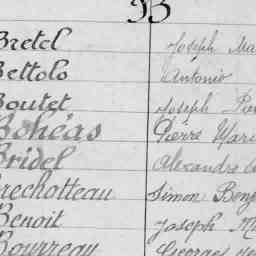 B
Bretel Joseph Ma
Bettolo Antonio
Boutet Joseph
Bohéas Pierre Mari
Bridel Alexandre
rechotteau Simon Benj
Benoit Joseph M
Bourreau Georges